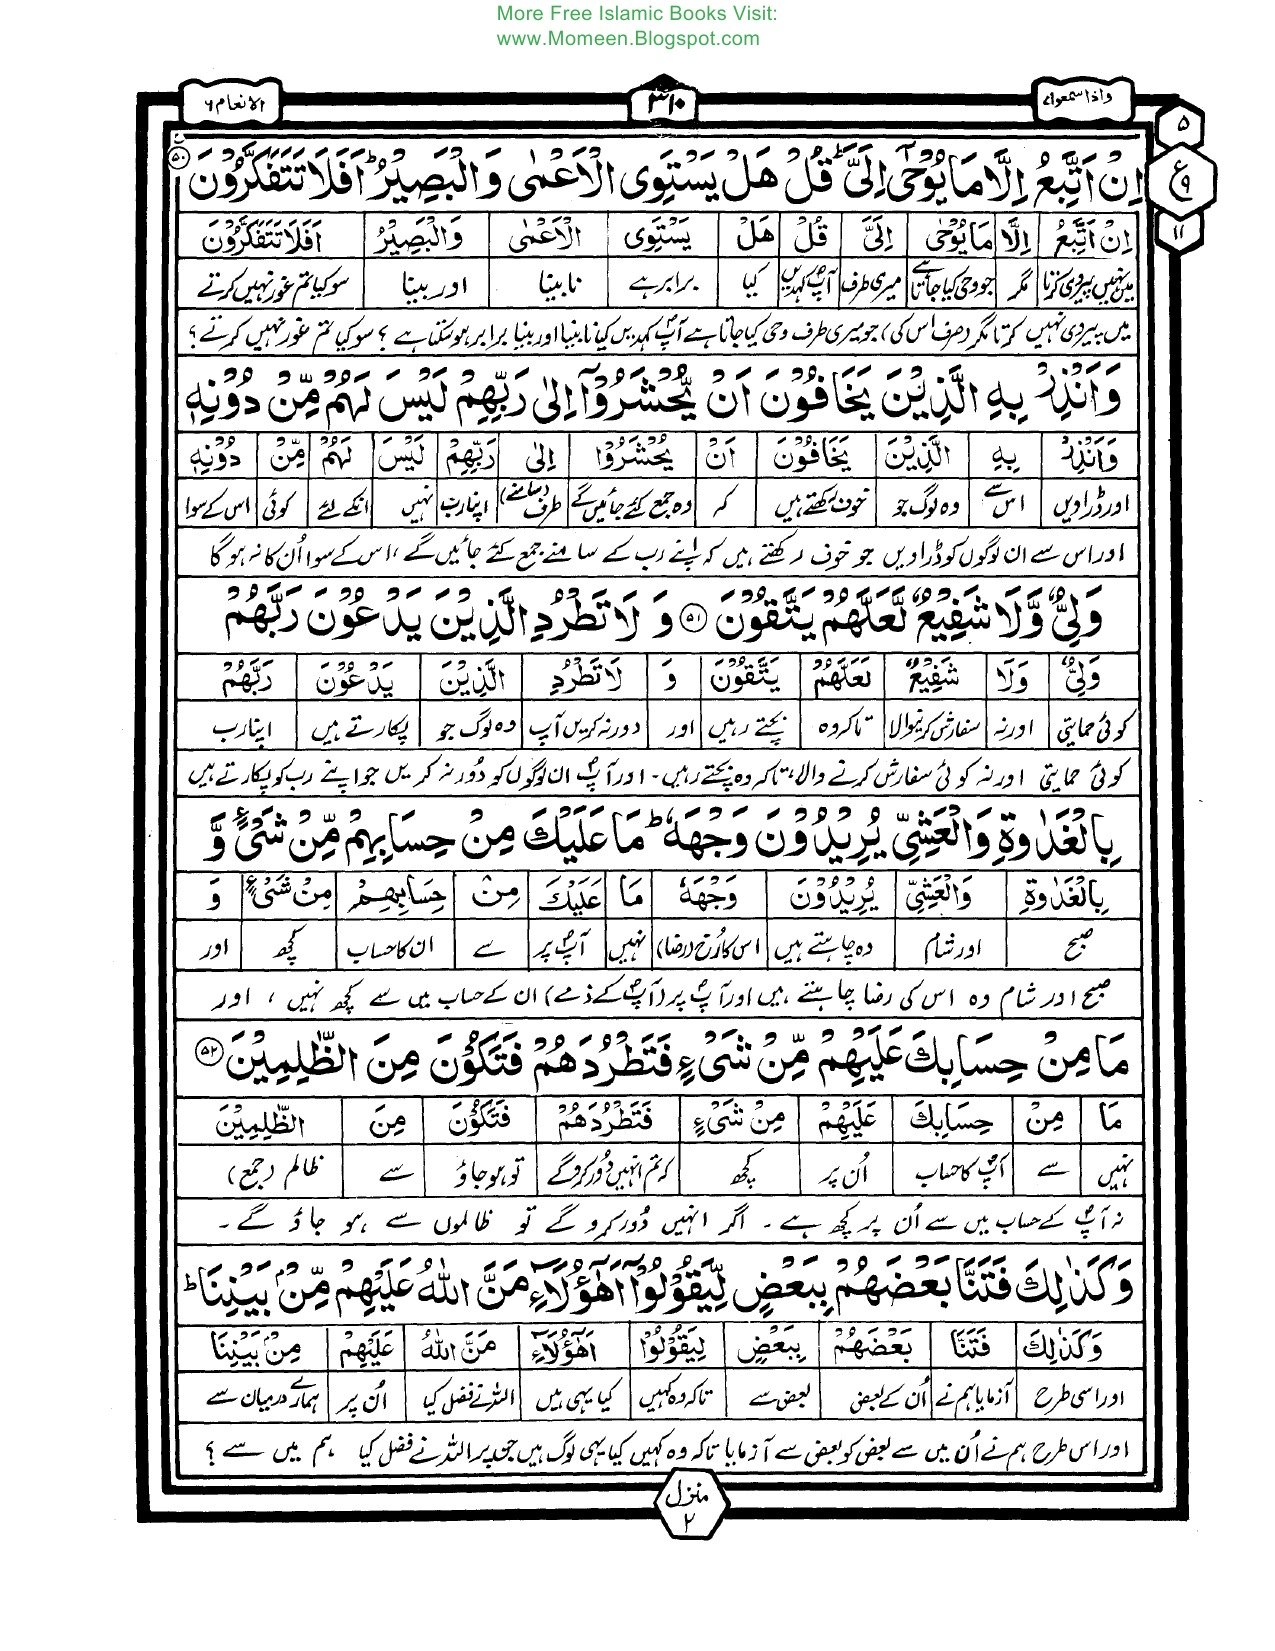 More Free Islamic Books Visit:
www.Momeen.Blogspot.com
واذا سمعوا ٧
٣١٠
الانعام ٦
٥
ع
٩
١١
اِنْ اَتَّبِعُ اِلَّا مَا يُوْحٰٓى اِلَىَّ ؕ قُلْ هَلْ يَسْتَوِى الْاَعْمٰى وَالْبَصِيْرُ ؕ اَفَلَا تَتَفَكَّرُوْنَ ۝۵۰
اِنْ اَتَّبِعُ اِلَّا مَا يُوْحٰٓى اِلَىَّ قُلْ هَلْ يَسْتَوِى الْاَعْمٰى وَالْبَصِيْرُ اَفَلَا تَتَفَكَّرُوْنَ
میں نہیں پیروی کرتا مگر جو وحی کیا جاتا ہے میری طرف آپؐ کہدیں کیا برابر ہے نابینا اور بینا سو کیا تم غور نہیں کرتے
میں پیروی نہیں کرتا مگر (صرف اس کی) جو میری طرف وحی کیا جاتا ہے آپؐ کہدیں کیا نابینا اور بینا برابر ہو سکتا ہے ؟ سو کیا تم غور نہیں کرتے ؟
وَاَنْذِرْ بِهِ الَّذِيْنَ يَخَافُوْنَ اَنْ يُّحْشَرُوْۤا اِلٰى رَبِّهِمْ لَيْسَ لَهُمْ مِّنْ دُوْنِهٖ
وَاَنْذِرْ بِهِ الَّذِيْنَ يَخَافُوْنَ اَنْ يُّحْشَرُوْۤا اِلٰى رَبِّهِمْ لَيْسَ لَهُمْ مِّنْ دُوْنِهٖ
اور ڈراویں اس سے وہ لوگ جو خوف رکھتے ہیں کہ وہ جمع کئے جائیں گے طرف (سامنے) اپنا رب نہیں انکے لئے کوئی اس کے سوا
اور اس سے ان لوگوں کو ڈراویں جو خوف رکھتے ہیں کہ اپنے رب کے سامنے جمع کئے جائیں گے ، اس کے سوا اُن کا نہ ہوگا
وَلِىٌّ وَّلَا شَفِيْعٌ لَّعَلَّهُمْ يَتَّقُوْنَ ۝۵۱ وَ لَا تَطْرُدِ الَّذِيْنَ يَدْعُوْنَ رَبَّهُمْ
وَلِىٌّ وَلَا شَفِيْعٌ لَعَلَّهُمْ يَتَّقُوْنَ وَ لَا تَطْرُدِ الَّذِيْنَ يَدْعُوْنَ رَبَّهُمْ
کوئی حمایتی اور نہ سفارش کرنیوالا تاکہ وہ بچتے رہیں اور دور نہ کریں آپ وہ لوگ جو پکارتے ہیں اپنا رب
کوئی حمایتی اور نہ کوئی سفارش کرنے والا، تاکہ وہ بچتے رہیں ۔ اور آپؐ ان لوگوں کو دُور نہ کریں جو اپنے رب کو پکارتے ہیں
بِالْغَدٰوةِ وَالْعَشِىِّ يُرِيْدُوْنَ وَجْهَهٗ ؕ مَا عَلَيْكَ مِنْ حِسَابِهِمْ مِّنْ شَىْءٍ وَّ
بِالْغَدٰوةِ وَالْعَشِىِّ يُرِيْدُوْنَ وَجْهَهٗ مَا عَلَيْكَ مِنْ حِسَابِهِمْ مِنْ شَىْءٍ وَ
صبح اور شام وہ چاہتے ہیں اس کا رُخ (رضا) نہیں آپؐ پر سے ان کا حساب کچھ اور
صبح اور شام وہ اس کی رضا چاہتے ہیں اور آپؐ پر (آپؐ کے ذمے) ان کے حساب میں سے کچھ نہیں ، اور
مَا مِنْ حِسَابِكَ عَلَيْهِمْ مِّنْ شَىْءٍ فَتَطْرُدَهُمْ فَتَكُوْنَ مِنَ الظّٰلِمِيْنَ ۝۵۲
مَا مِنْ حِسَابِكَ عَلَيْهِمْ مِنْ شَىْءٍ فَتَطْرُدَهُمْ فَتَكُوْنَ مِنَ الظّٰلِمِيْنَ
نہیں سے آپؐ کا حساب اُن پر کچھ کہ تم انہیں دُور کرو گے تو ہو جاؤ سے ظالم (جمع)
نہ آپؐ کے حساب میں سے اُن پر کچھ ہے ۔ اگر انہیں دُور کرو گے تو ظالموں سے ہو جاؤ گے ۔
وَكَذٰلِكَ فَتَنَّا بَعْضَهُمْ بِبَعْضٍ لِّيَقُوْلُوْۤا اَهٰٓؤُلَآءِ مَنَّ اللّٰهُ عَلَيْهِمْ مِّنْۢ بَيْنِنَا ؕ
وَكَذٰلِكَ فَتَنَّا بَعْضَهُمْ بِبَعْضٍ لِيَقُوْلُوْۤا اَهٰٓؤُلَآءِ مَنَّ اللّٰهُ عَلَيْهِمْ مِنْۢ بَيْنِنَا
اور اسی طرح آزمایا ہم نے اُن کے بعض بعض سے تاکہ وہ کہیں کیا یہی ہیں اللہ نے فضل کیا اُن پر ہمارے درمیان سے
اور اس طرح ہم نے اُن میں سے بعض کو بعض سے آزمایا تاکہ وہ کہیں کیا یہی لوگ ہیں جن پر اللہ نے فضل کیا ہم میں سے ؟
منزل
٢